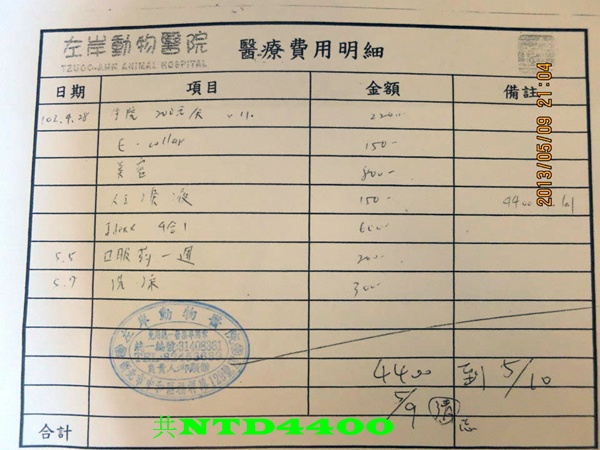 左岸動物醫院 醫療費用明細
TZUOO-ANN ANIMAL HOSPITAL
日期 項目 金額 備註
102.4.28 住院 200元/天 × 11 2200-
E-collar 150-
美容 800-
150- 4400
4合1 600-
5.5 口服葯一週 200-
5.9 洗澡 300-
左岸動物醫院
統一編號:31408361
TEL:
負責人:
4400 到 5/10
5/9 清
合計 共NTD4400
2013/05/09 21:04